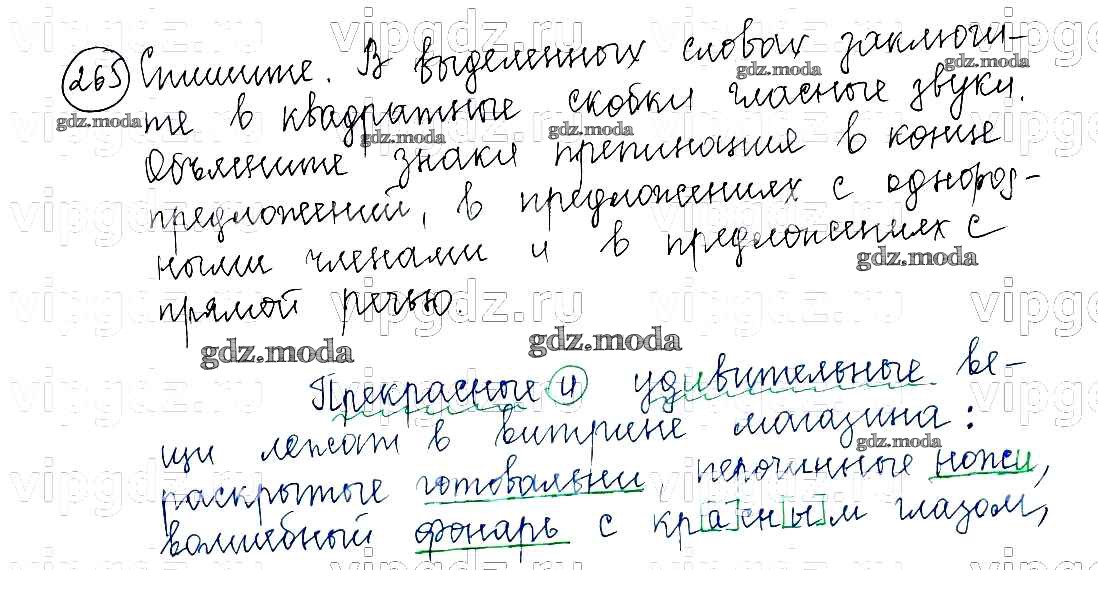 265 Спишите. В выделенных словах заключи-
те в квадратные скобки гласные звуки.
Объясните знаки препинания в конце
предложений, в предложениях с однород-
ными членами и в предложениях с
прямой речью.
Прекрасные и удивительные ве-
щи лежат в витрине магазина:
раскрытые готовальни, перочинные ножи,
волшебный фонарь с кр[а]сн[ы]м глазом,
vipgdz.ru
gdz.moda